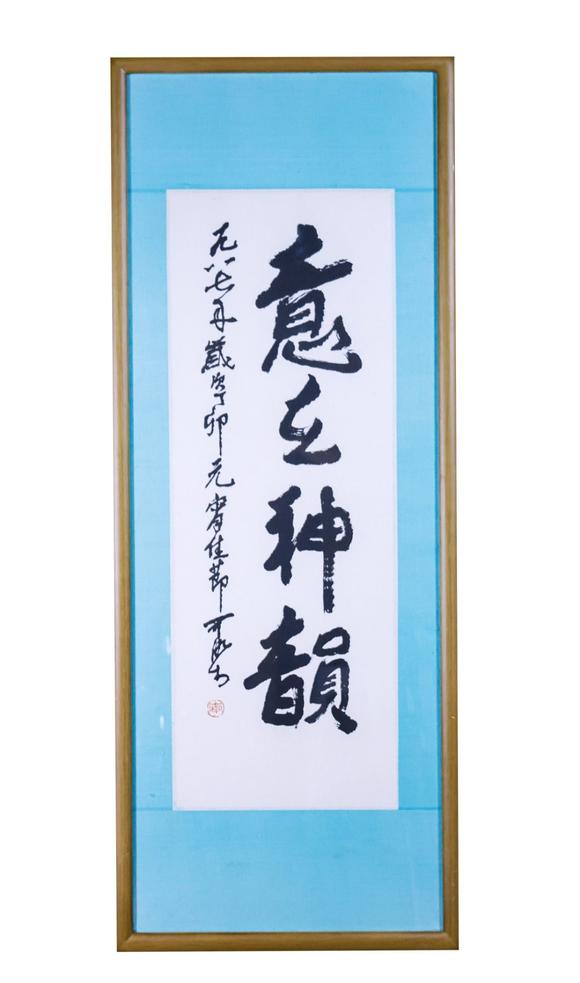 意在神韻
一九八七年歲次丁卯元宵佳節